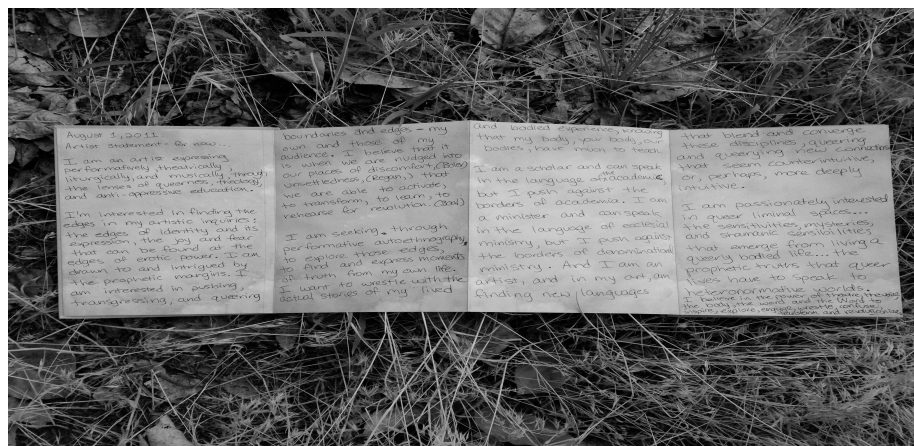 August 1, 2011
Artist statement - for now...
I am an artist expressing
performatively, theatrically,
liturgically, and musically, through
the lenses of queerness, theology,
and anti-oppressive education.
I'm interested in finding the
edges in my artistic inquiries:
the edges of identity and its
expression, the joy and fear
that can be found at the
edges of erotic power. I am
drawn to and intrigued by
the prophetic margins. I
am interested in pushing,
transgressing, and queering
boundaries and edges - my
own and those of my
audience. I believe that it
is when we are nudged into
our places of discomfort (Boal)
unsettledness (Regan), that
we are able to activate,
to transform, to learn, to
rehearse for revolution. (Boal)
I am seeking, through
performative autoethnography,
to explore those edges,
to find and express moments
of truth from my own life.
I want to wrestle with the
actual stories of my lived
and bodied experience, knowing
that my body, you body, our
bodies, have wisdom to teach.
I am a scholar and can speak
in the language of the academic,
but I push against the
borders of academia. I am
a minister and can speak
in the language of ecclesial
ministry, but I push against
the borders of denominational
ministry. And I am an
artist, and in my art, am
finding new languages
that blend and converge
these disciplines, queering
and querying new connections
that seem counterintuitive,
or, perhaps, more deeply
intuitive.
I am passionately interested
in queer liminal spaces...
the sensitivities, mysteries,
and shamanic sensibilities
that emerge from living a
queerly bodied life... the
prophetic truths that queer
lives have to speak to
heteronormative worlds.
I believe in the power of theatre, theology,
the body, the word and the Word to
inspire, explore, enrage, wrestle, confuse,
transform and revolutionize.